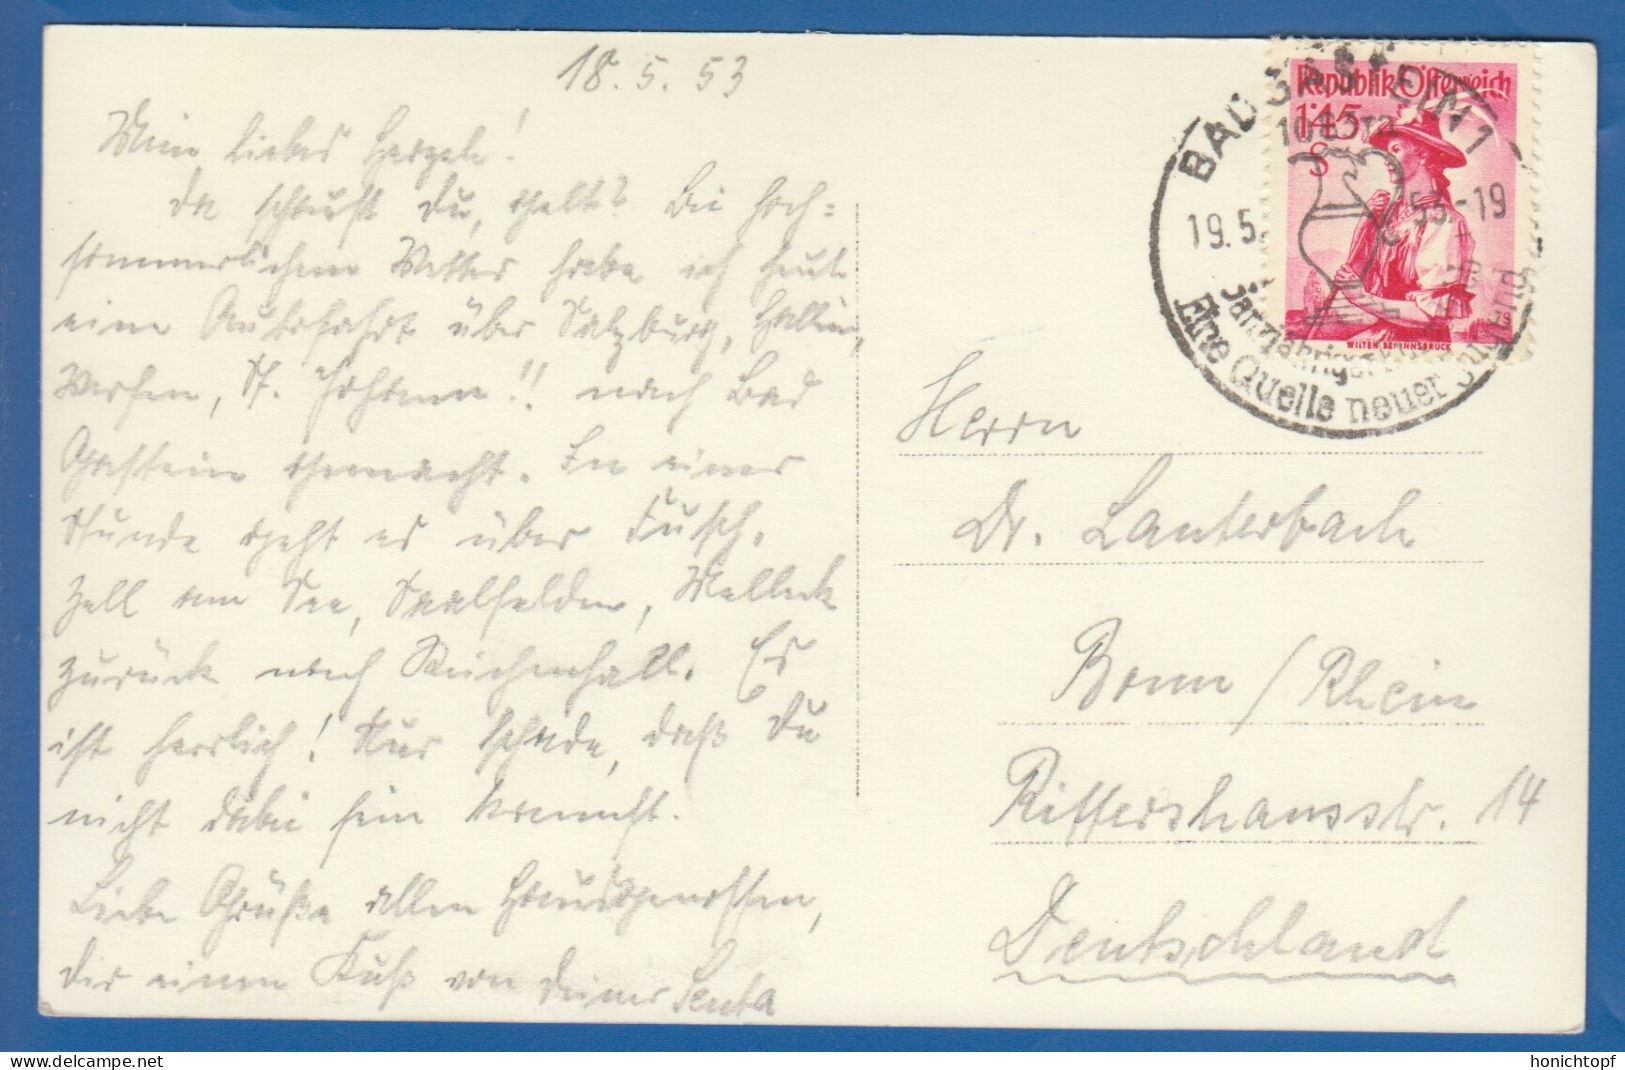 18. 5. 53
Mein liebes Herzele!
Da schaust Du, gelt? Bei hoch=
sommerlichem Wetter habe ich heute
eine Autofahrt über Salzburg, Hallein,
Werfen, St. Johann!! nach Bad
Gastein gemacht. In einer
Stunde geht es über Fusch,
Zell am See, Saalfelden, Melleck
zurück nach Reichenhall. Es
ist herrlich! Nur schade, daß Du
nicht dabei sein kannst.
Liebe Grüße allen Hausgenossen,
Dir einen Kuß von Deiner Senta
Republik Österreich
1'45
S
WILTEN BEI INNSBRUCK
BADGASTEIN 1
19.5. 53.-19
Ganzjähriger
Eine Quelle neuer Jugend
Herrn
Dr. Lauterbach
Bonn / Rhein
Rittershausstr. 14
Deutschland
honichtopf